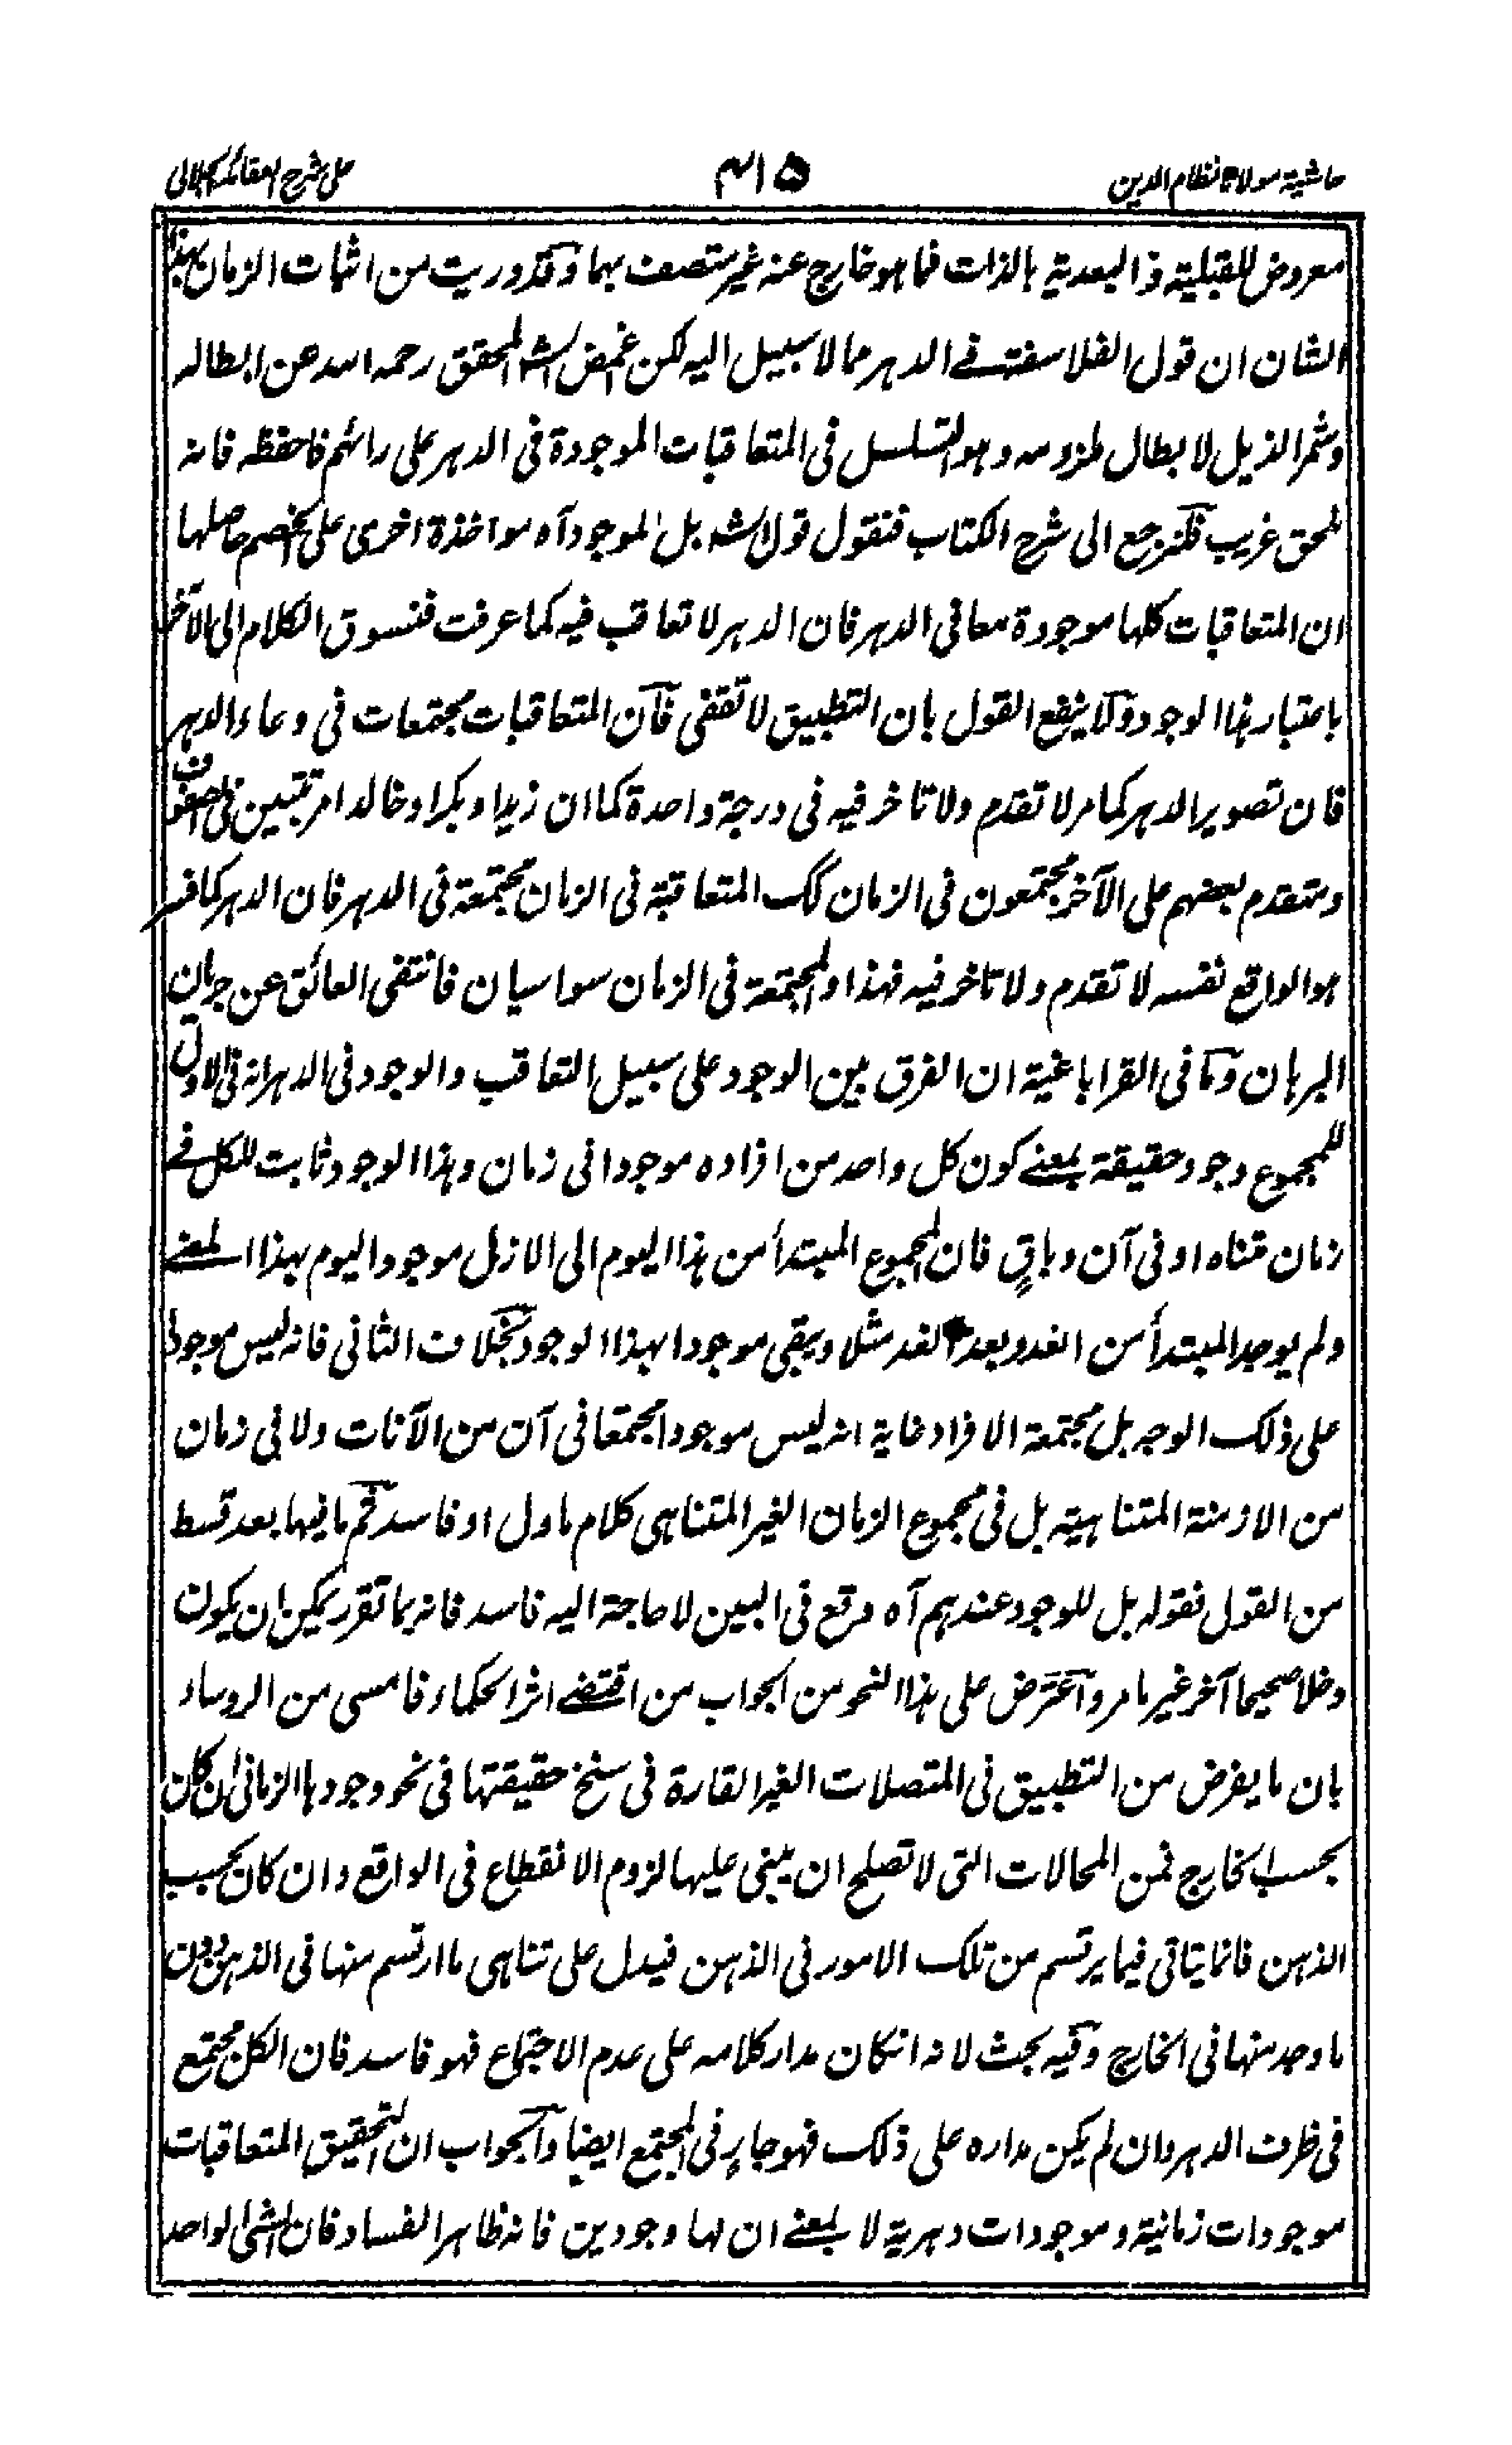 حاشیة مولانا نظام الدین
٤١٥
علی شرح العقائد الجلالی
معروض للقبلیة و البعدیة بالذات فما هو خارج عنه غیر متصف بهما و قد دریت من اثبات الزمان بهذا
الشان ان قول الفلاسفة فی الدهر مما لا سبیل الیه لکن غمض الشه المحقق رحمه الله عن ابطاله
و شمر الذیل لابطال ملزومه و هو التسلسل فی المتعاقبات الموجودة فی الدهر علی رائهم فاحفظه فانه
لحق غریب فلنرجع الی شرح الکتاب فنقول قول الشه بل الموجود آه مواخذة اخری علی الخصم حاصلها
ان المتعاقبات کلها موجودة معا فی الدهر فان الدهر لا تعاقب فیه کما عرفت فنسوق الکلام الی الآخر
باعتبار هذا الوجود و لا ینفع القول بان التطبیق لا تقفی فان المتعاقبات مجتمعات فی وعاء الدهر
فان تصویر الدهر کما مر لا تقدم ولا تاخر فیه فی درجة واحدة کما ان زیدا و بکرا و خالدا مرتبین فی الصفوف
و متقدم بعضهم علی الآخر مجتمعون فی الزمان کک المتعاقبة فی الزمان مجتمعة فی الدهر فان الدهر کما فسر
هو الواقع نفسه لا تقدم ولا تاخر فیه فهذا و المجتمعة فی الزمان سواسیان فانتفی العائق عن جریان
البرهان و ما فی القراباغیة ان الفرق بین الوجود علی سبیل التعاقب والوجود فی الدهر انه فی الاول
للمجموع وجود حقیقة بمعنی کون کل واحد من افراده موجودا فی زمان و هذا الوجود ثابت للکل فی
زمان متناه او فی آن و باقٍ فان المجموع المبتدأ من هذا الیوم الی الازل موجود الیوم بهذا المعنی
ولم یوجد المبتدأ من الغد و بعد الغد مثلا ویبقی موجودا بهذا الوجود بخلاف الثانی فانه لیس موجودا
علی ذلک الوجه بل مجتمعة الافراد غایة انه لیس موجودا مجتمعا فی آن من الآنات ولا فی زمان
من الازمنة المتناهیة بل فی مجموع الزمان الغیر المتناهی کلام ماول او فاسد ثم ما فیها بعد قسط
من القول فقوله بل للوجود عندهم آه وقع فی البین لا حاجة الیه فاسد فانه بما تقرر یمکن ان یکون
دخلا صحیحا آخر غیر ما مر و اعترض علی هذا النحو من الجواب من اقتضی اثر الحکماء فامسی من الروساء
بان ما یفرض من التطبیق فی المتصلات الغیر القارة فی سنخ حقیقتها فی نحو وجودها الزمانی ان کان
بحسب الخارج فمن المحالات التی لا تصلح ان یبنی علیها لزوم الانقطاع فی الواقع و ان کان بحسب
الذهن فانما یتاتی فیما یرتسم من تلک الامور فی الذهن فیدل علی تناهی ما ارتسم منها فی الذهن دون
ما وجد منها فی الخارج و فیه بحث لانه انکان مدار کلامه علی عدم الاجتماع فهو فاسد فان الکل مجتمع
فی ظرف الدهر و ان لم یکن مداره علی ذلک فهو جارٍ فی المجتمع ایضا و الجواب ان التحقیق المتعاقبات
موجودات زمانیة و موجودات دهریة لا بمعنی ان لها وجودین فانه ظاهر الفساد فان الشئ الواحد